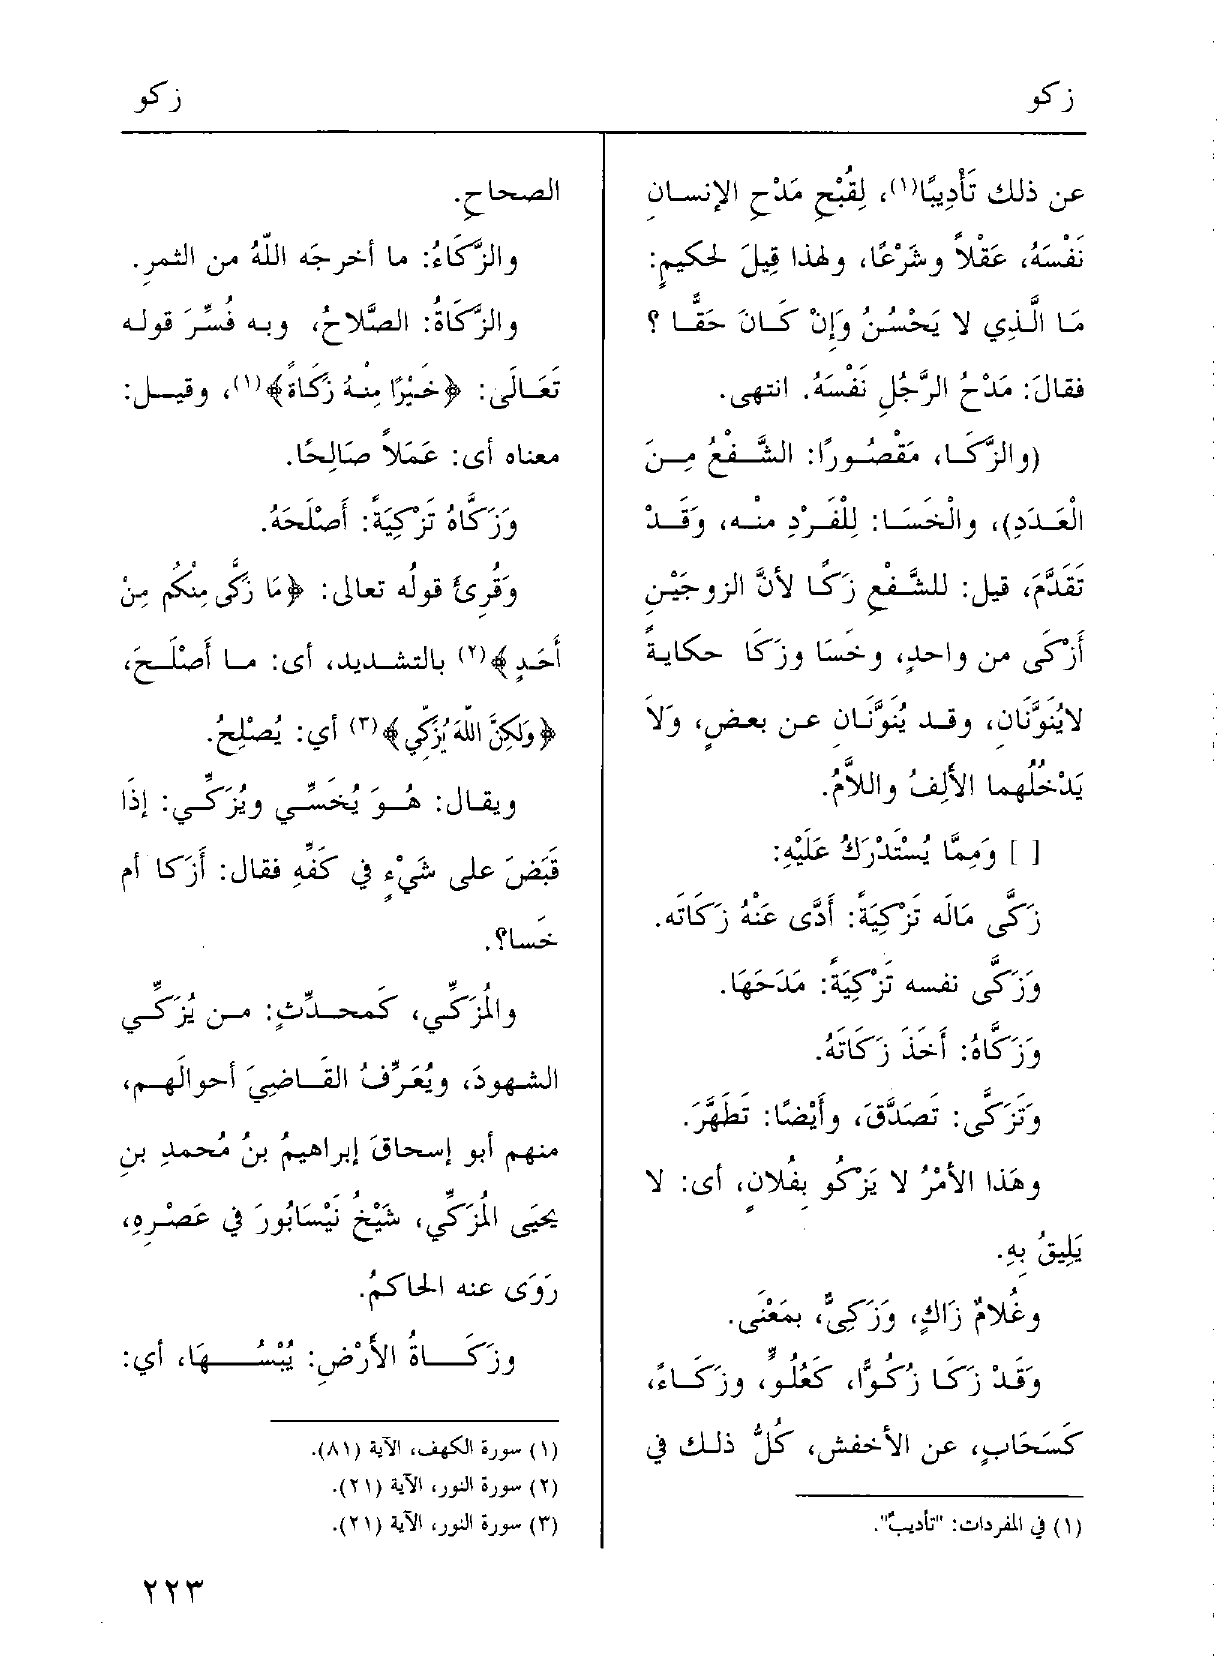 زكو
زكو
عن ذلك تَأْدِيبًا(١)، لِقُبْحِ مَدْحِ الإنسـانِ
نَفْسَهُ، عَقْلاً وشَرْعًا، ولهذا قِيلَ لحكيمٍ:
مَا الَّـذِي لا يَحْسُـنُ وَإِنْ كَـانَ حَقًّـا ؟
فقالَ: مَدْحُ الرَّجُلِ نَفْسَهُ. انتهى.
(والزَّكَـا، مَقْصُـورًا: الشَّـفْعُ مِـنَ
الْعَـدَدِ)، والْخَسَـا: لِلْفَـرْدِ منـه، وَقَـدْ
تَقَدَّمَ، قيل: للشَّـفْعِ زَكًا لأنَّ الزوجَيْـنِ
أَزْكَى من واحدٍ، وخَسَا وزَكَا حكايـةً
لايُنَوَّنَانِ، وقـد يُنَوَّنَـانِ عـن بعضٍ، وَلاَ
يَدْخُلُهما الأَلِفُ واللاَّمُ.
[ ] وَمِمَّا يُسْتَدْرَكُ عَلَيْهِ:
زَكَّى مَالَه تَزْكِيَةً: أَدَّى عَنْهُ زَكَاتَه.
وَزَكَّى نفسه تَزْكِيَةً: مَدَحَهَا.
وَزَكَّاهُ: أَخَذَ زَكَاتَهُ.
وَتَزَكَّى: تَصَدَّقَ، وأَيْضًا: تَطَهَّرَ.
وهَذا الأَمْرُ لا يَزْكُو بِفُلانٍ، أى: لا
يَلِيقُ بِهِ.
وغُلامٌ زَاكٍ، وَزَكِىٌّ، بمَعْنًى.
وَقَـدْ زَكَـا زُكُـوًّا، كَعُلُـوٍّ، وزَكَـاءً،
كَسَحَابٍ، عن الأخفش، كُلُّ ذلـك في
(١) في المفردات: "تأديبٌ".
الصحاحِ.
والزَّكَاءُ: ما أخرجَه اللهُ من الثمرِ.
والزَّكَاةُ: الصَّلاحُ، وبـه فُسِّرَ قولـه
تَعَـالَى: ﴿خَيْرًا مِنْهُ زَكَاةً﴾(١)، وقيـل:
معناه أى: عَمَلاً صَالِحًا.
وَزَكَّاهُ تَزْكِيَةً: أَصْلَحَهُ.
وَقُرِئَ قولُه تعالى: ﴿مَا زَكَّى مِنْكُم مِنْ
أَحَدٍ﴾(٢) بالتشـديد، أى: مـا أَصْلَـحَ،
﴿وَلَكِنَّ اللهَ يُزَكِّي﴾(٣) أي: يُصْلِحُ.
ويقـال: هُـوَ يُخَسِّـي ويُزَكِّـي: إذَا
قَبَضَ على شَيْءٍ في كَفِّهِ فقال: أَزَكا أم
خَسا؟.
والمُزَكِّي، كَمحـدِّثٍ: مـن يُزَكِّـي
الشـهودَ، ويُعَرِّفُ القَـاضِيَ أحوالَهـم،
منهم أبو إسحاقَ إبراهيمُ بنُ مُحمدِ بنِ
يحيَى المُزَكِّي، شَيْخُ نَيْسَابُورَ في عَصْـرِهِ،
رَوَى عنه الحاكمُ.
وزَكَـــاةُ الأَرْضِ: يُبْسُـــهَا، أي:
(١) سورة الكهف، الآية (٨١).
(٢) سورة النور، الآية (٢١).
(٣) سورة النور، الآية (٢١).
٢٢٣